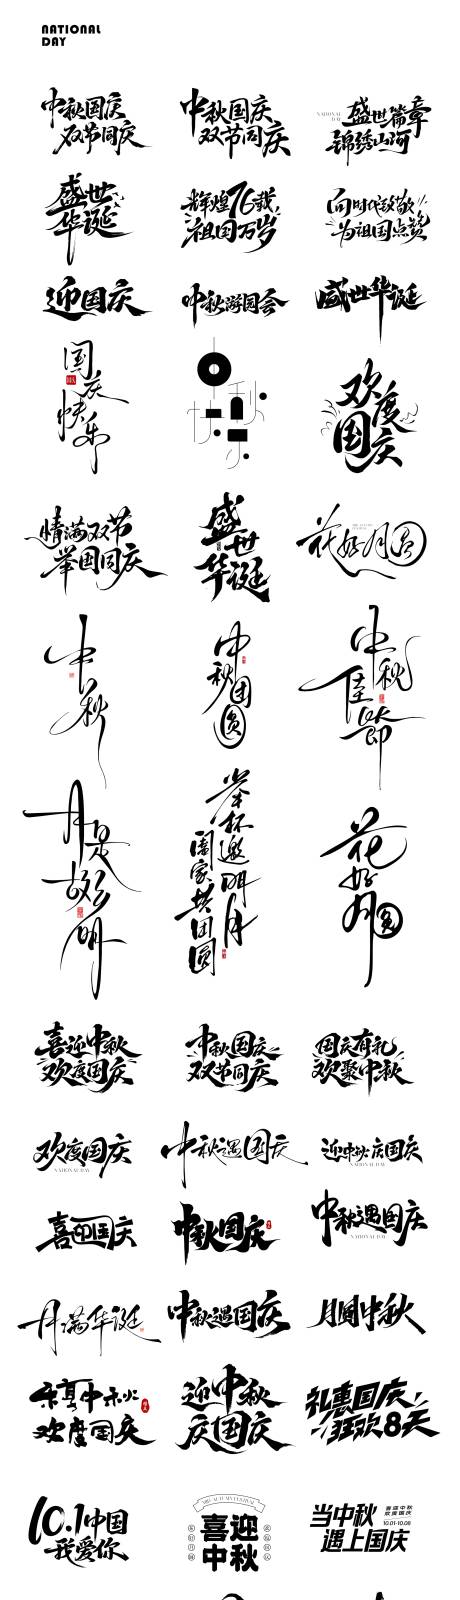 NATIONAL
DAY
中秋国庆
双节同庆
中秋国庆
双节同庆
NATIONAL
DAY
盛世篇章
锦绣山河
盛世
华诞
辉煌76载
祖国万岁
向时代致敬
为祖国点赞
迎国庆
中秋游园会
盛世华诞
国庆
快乐
中秋
快乐
欢度
国庆
情满双节
举国同庆
盛世
华诞
花好月圆
中秋
中秋
团圆
中秋
佳節
月是
故乡
明
举杯邀明月
阖家共团圆
花好
月圆
喜迎中秋
欢度国庆
中秋国庆
双节同庆
国庆有礼
欢聚中秋
欢度国庆
NATIONAL DAY
中秋遇国庆
迎中秋庆国庆
NATIONAL DAY
喜迎国庆
中秋国庆
中秋遇国庆
NATIONAL DAY
月满华诞
中秋遇国庆
月圆中秋
乐享中秋
欢度国庆
迎中秋
庆国庆
礼惠国庆
狂欢8天
10.1中国
我爱你
MID-AUTUMN FESTIVAL
喜迎
中秋
花好月圆
当中秋
遇上国庆
喜迎中秋
欢度国庆
10.01-10.08